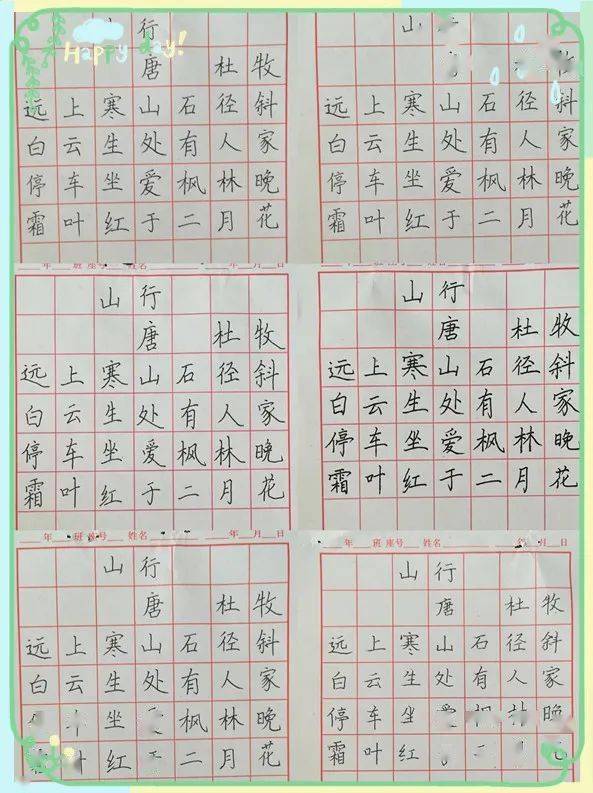 Happy day!
山行
唐 杜牧
远上寒山石径斜
白云生处有人家
停车坐爱枫林晚
霜叶红于二月花
年 班 座号 姓名 年 月 日
山行
牧
远上寒山石径斜
白云生处有人家
停车坐爱枫林晚
霜叶红于二月花
山行
唐 杜牧
远上寒山石径斜
白云生处有人家
停车坐爱枫林晚
霜叶红于二月花
年 班 座号 姓名 年 月 日
山行
唐 杜牧
远上寒山石径斜
白云生处有人家
停车坐爱枫林晚
霜叶红于二月花
年 班 座号 姓名 年 月 日
山行
唐 杜牧
远上寒山石径斜
白云生处有人家
坐 枫林晚
叶红于二月花
山行
唐 杜牧
远上寒山石径斜
白云生处有人家
停车坐爱枫林晚
霜叶红 二月